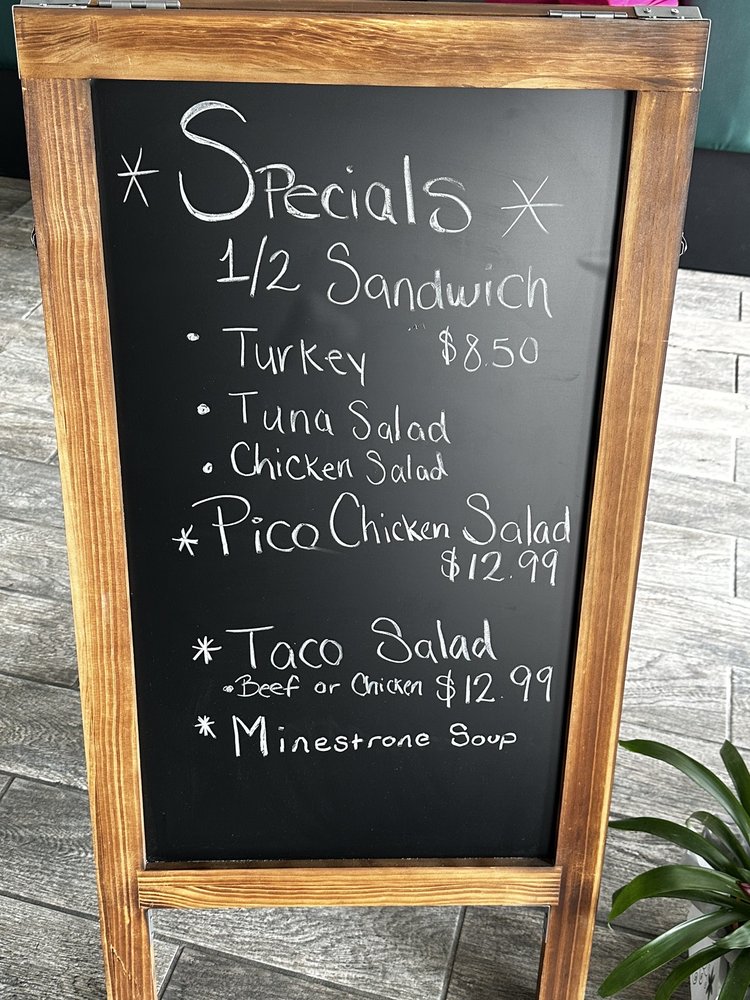 * Specials *
1/2 Sandwich
• Turkey $8.50
• Tuna Salad
• Chicken Salad
* Pico Chicken Salad
$12.99
* Taco Salad
• Beef or Chicken $12.99
* Minestrone Soup